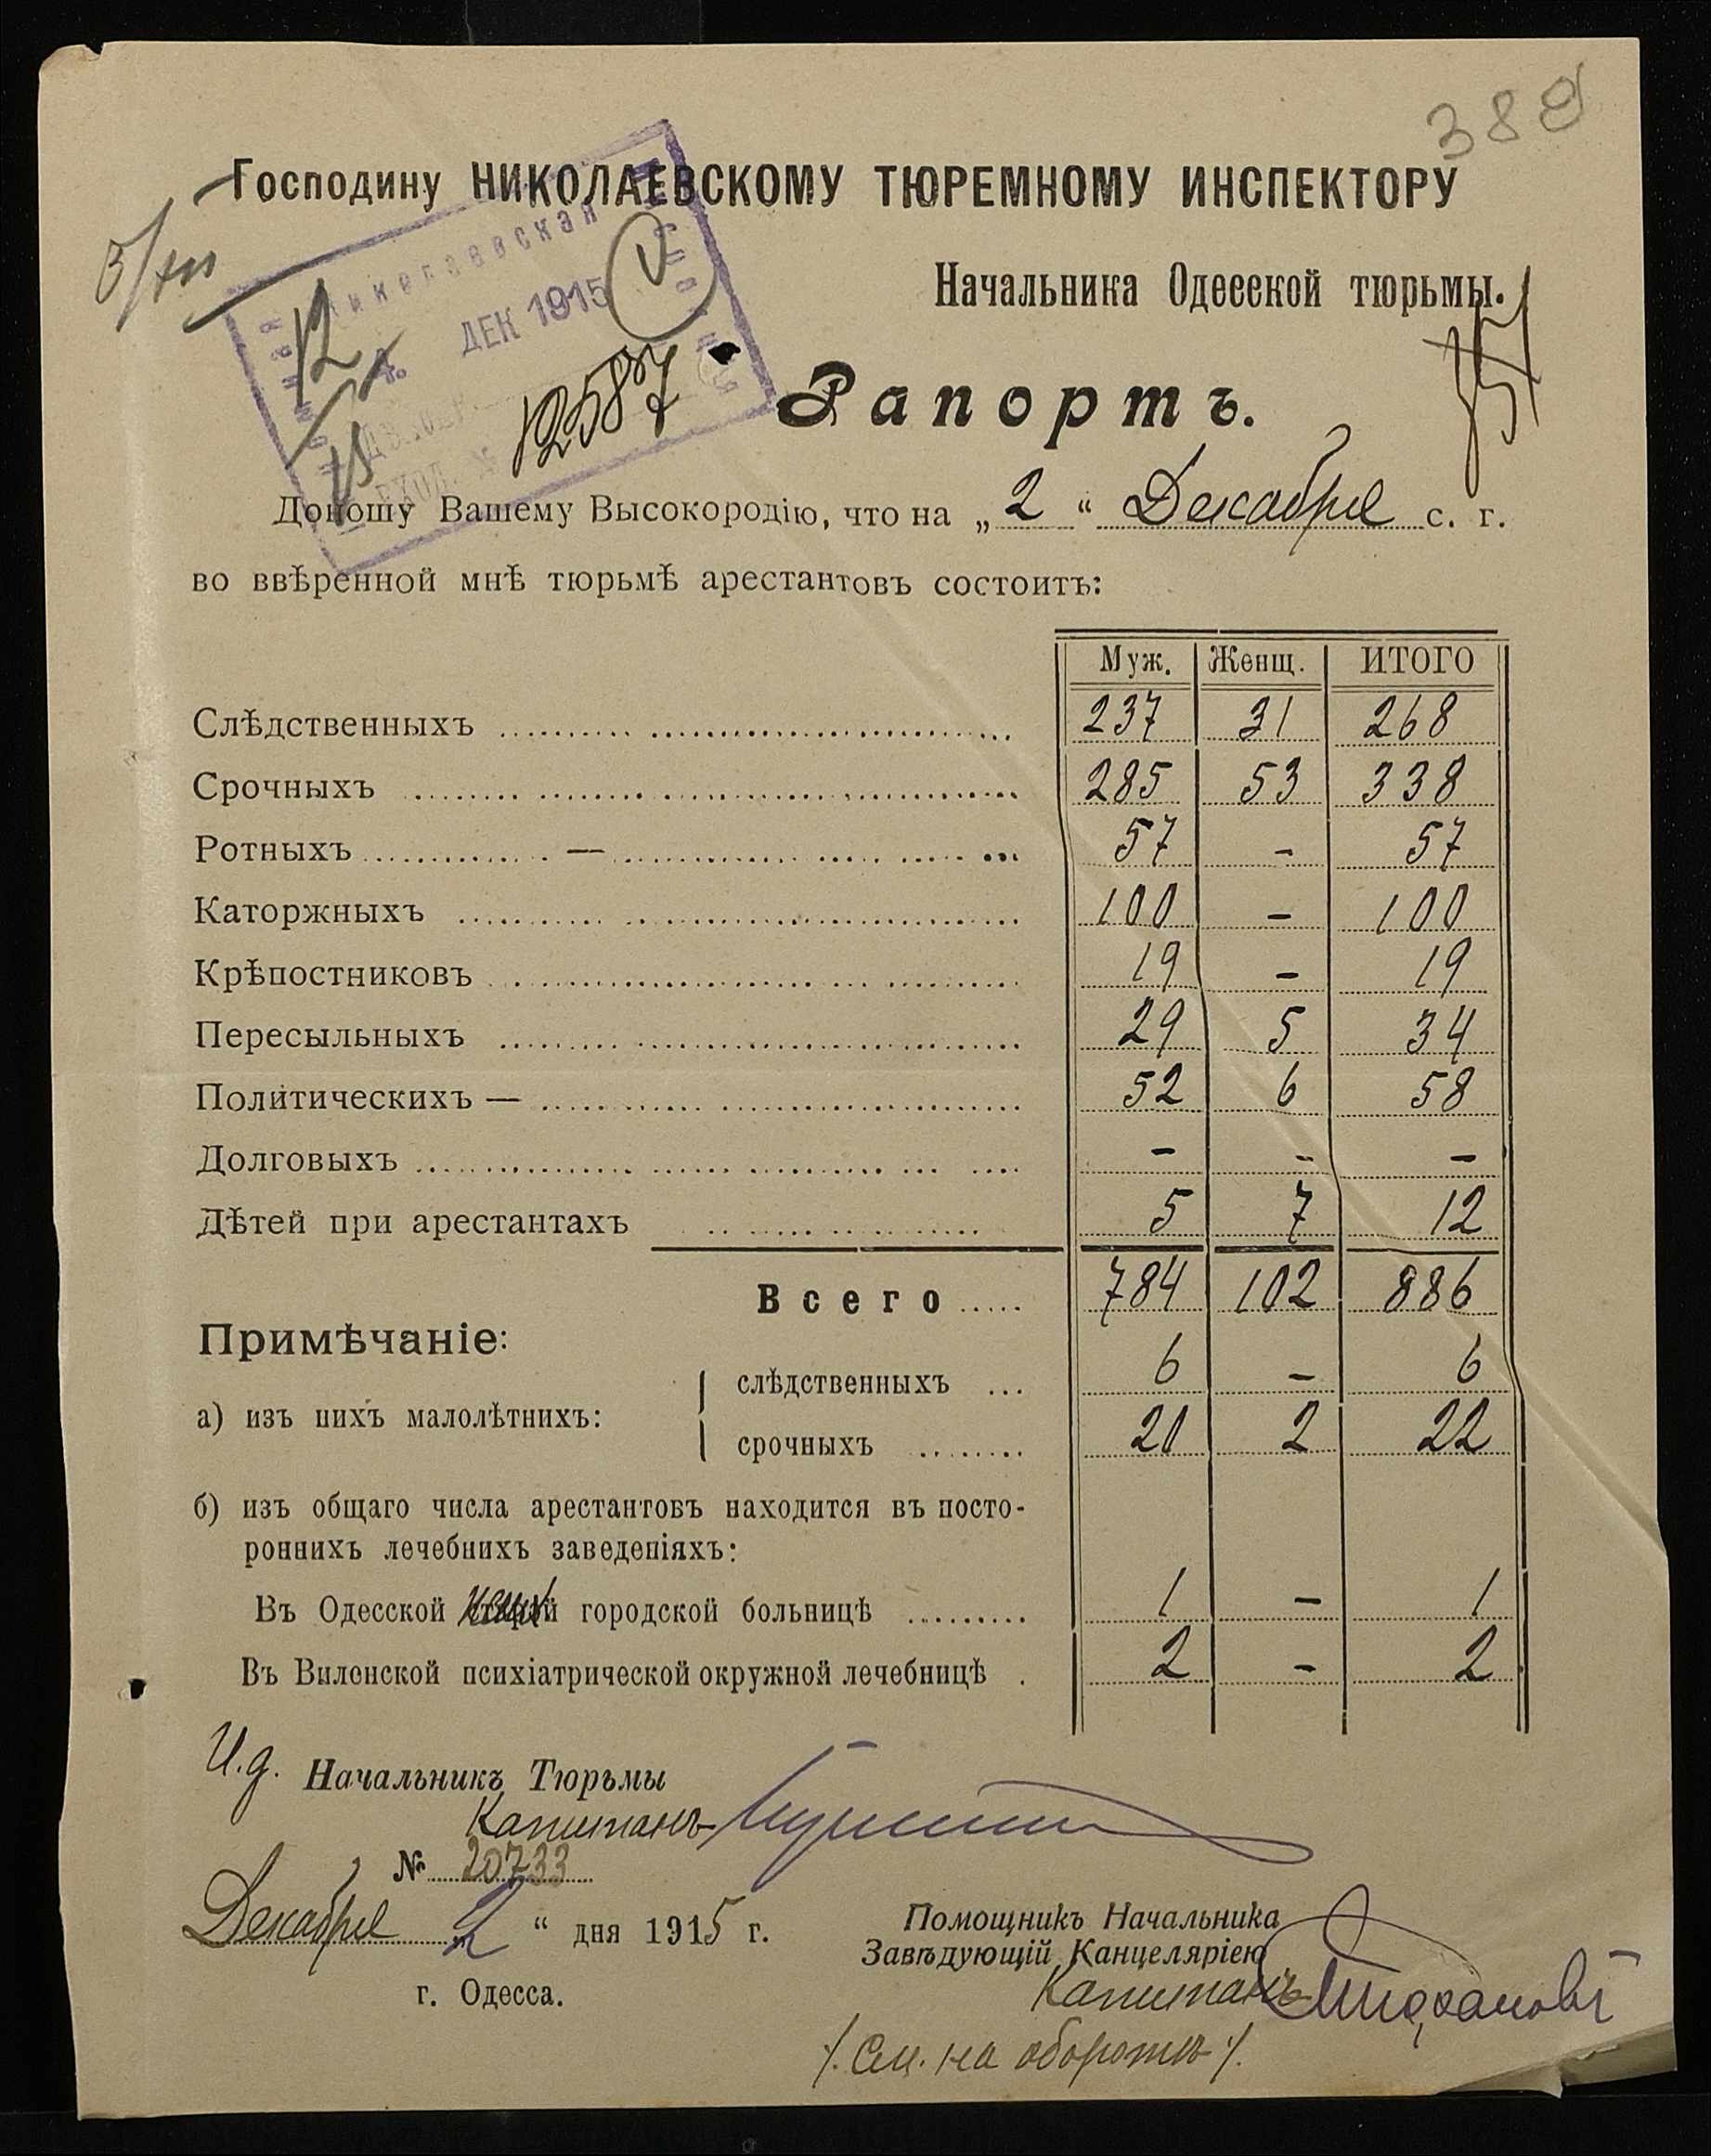 388
Господину НИКОЛАЕВСКОМУ ТЮРЕМНОМУ ИНСПЕКТОРУ
3/XII
Николаевская
ДЕК 1915
12587
Начальника Одесской тюрьмы.
Рапортъ.
Доношу Вашему Высокородію, что на „2“ Декабря с. г.
во ввѣренной мнѣ тюрьмѣ арестантовъ состоитъ:
Муж. Женщ. ИТОГО
Слѣдственныхъ 237 31 268
Срочныхъ 285 53 338
Ротныхъ — 57 - 57
Каторжныхъ 100 - 100
Крѣпостниковъ 19 - 19
Пересыльныхъ 29 5 34
Политическихъ — 52 6 58
Долговыхъ - - -
Дѣтей при арестантахъ 5 7 12
Всего 784 102 886
Примѣчаніе:
а) изъ нихъ малолѣтнихъ:
слѣдственныхъ 6 - 6
срочныхъ 20 2 22
б) изъ общаго числа арестантовъ находится въ посто-
роннихъ лечебнихъ заведеніяхъ:
Въ Одесской городской больницѣ 1 - 1
Въ Виленской психіатрической окружной лечебницѣ 2 - 2
И.д. Начальникъ Тюрьмы
Капитанъ
№ 20733
Декабря 2 “ дня 1915 г.
г. Одесса.
Помощникъ Начальника
Завѣдующій Канцеляріею
Капитанъ
/. См. на оборотѣ /.